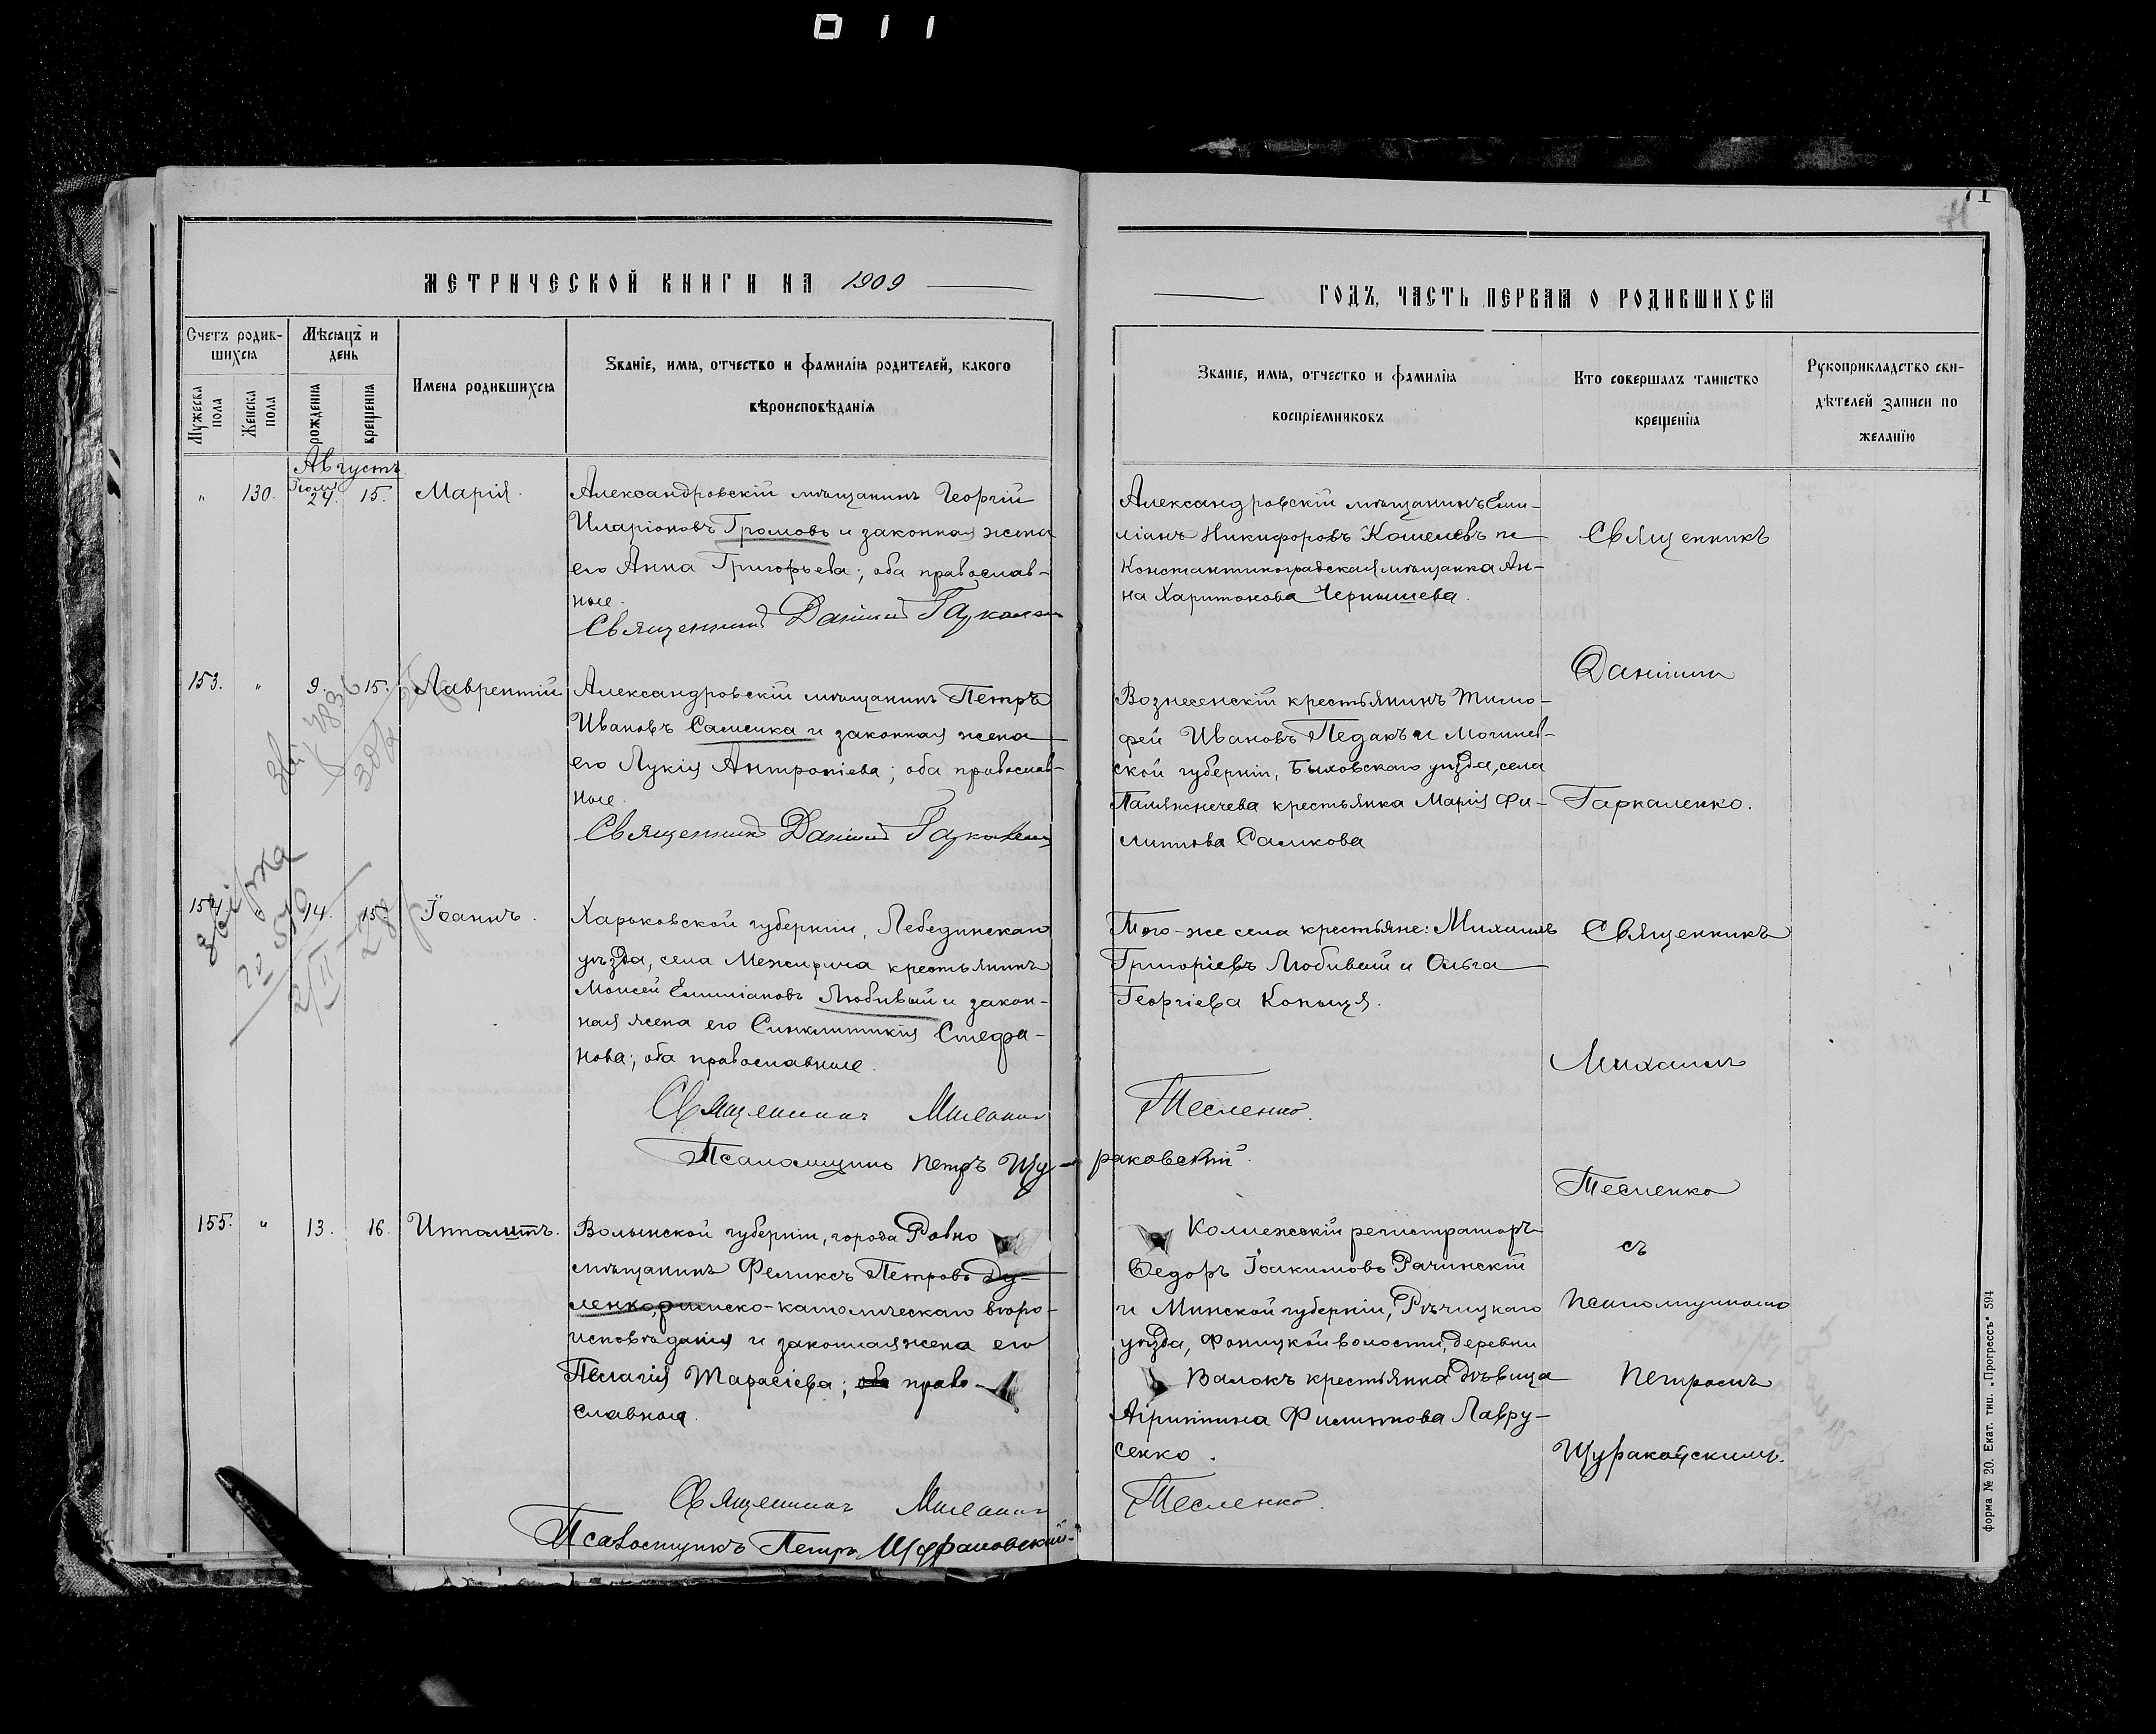 011
71
МЕТРИЧЕСКОЙ КНИГИ НА 1909
ГОДЪ, ЧАСТЬ ПЕРВАЯ О РОДИВШИХСЯ
Счетъ родив-
шихся
Мѣсяцъ и
день
Мужеска пола
Женска пола
рожденія
крещенія
Имена родившихся
Званіе, имя, отчество и фамилія родителей, какого
вѣроисповѣданія
Званіе, имя, отчество и фамилія
воспріемниковъ
Кто совершалъ таинство
крещенія
Рукоприкладство сви-
дѣтелей записи по
желанію
Августъ
" 130. Іюля 24. 15. Марія.
Александровскій мѣщанинъ Георгій
Иларіоновъ Громовъ и законная жена
его Анна Григорьева; оба православ-
ные.
Священникъ Даніилъ Гаркаленко
Александровскій мѣщанинъ Еми-
ліанъ Никифоровъ Кошелевъ и
Константиноградская мѣщанка Ан-
на Харитонова Чернышева.
Священникъ
Даніилъ
Гаркаленко.
153. " 9. 15. Лаврентій
Александровскій мѣщанинъ Петръ
Ивановъ Саменка и законная жена
его Лукія Антропіева; оба православ-
ные.
Священникъ Даніилъ Гаркаленко
Вознесенскій крестьянинъ Тимо-
фей Ивановъ Педакъ и Могилев-
ской губерніи, Быховскаго уѣзда, села
крестьянка Марія Фи-
липпова Саликова
154. " 14. 15. Іоаннъ.
Харьковской губерніи, Лебединскаго
уѣзда, села Межирича крестьянинъ
Моисей Емиліановъ Любивый и закон-
ная жена его Синклитикія Стефа-
нова; оба православные.
Священникъ Михаилъ Тесленко.
Псаломщикъ Петръ Щу-раковскій.
Того-же села крестьяне: Михаилъ
Григоріевъ Любивый и Ольга
Георгіева Коныця.
Священникъ
Михаилъ
Тесленко
съ
псаломщикомъ
Петромъ
Щураковскимъ.
155. " 13. 16. Ипполитъ.
Волынской губерніи, города Ровно
мѣщанинъ Феликсъ Петровъ Ду-
ленко, римско-католическаго вѣро-
исповѣданія и законная жена его
Пелагія Тарасіева; оба право-
славная.
Священникъ Михаилъ Тесленко.
Псаломщикъ Петръ Щураковскій.
Коллежскій регистраторъ
Ѳедоръ Іоакимовъ Рачинскій
и Минской губерніи, Рѣчицкаго
уѣзда, волости, деревни
Валокъ крестьянка дѣвица
Агриппина Филиппова Лавру-
сенко.
форма № 20. Екат. тип. „Прогрессъ" 594